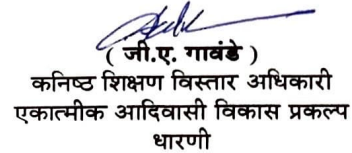 ( जी.ए. गावंडे )
कनिष्ठ शिक्षण विस्तार अधिकारी
एकात्मीक आदिवासी विकास प्रकल्प
धारणी